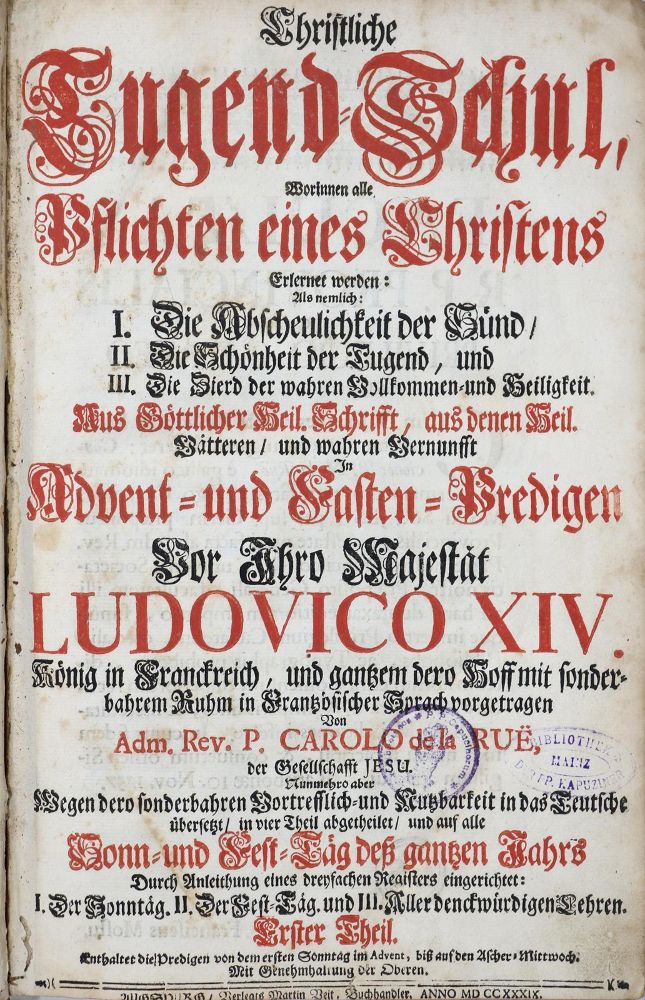 Christliche
Tugend-Schul,
Worinnen alle
Pflichten eines Christens
Erlernet werden:
Als nemlich:
I. Die Abscheulichkeit der Sünd/
II. Die Schönheit der Tugend, und
III. Die Zierd der wahren Vollkommen-und Heiligkeit.
Aus Göttlicher Heil. Schrifft, aus denen Heil.
Vätteren/ und wahren Vernunfft
In
Advent-und Fasten-Predigen
Vor Ihro Majestät
LUDOVICO XIV.
König in Franckreich, und gantzem dero Hoff mit sonder-
bahrem Ruhm in Frantzösischer Sprach vorgetragen
Von
Adm. Rev. P. CAROLO de la RUË,
der Gesellschafft JESU.
Nunmehro aber
Wegen dero sonderbahren Vortrefflich-und Nutzbarkeit in das Teutsche
übersetzt/ in vier Theil abgetheilet/ und auf alle
Sonn-und Fest-Täg deß gantzen Jahrs
Durch Anleithung eines dreyfachen Registers eingerichtet:
I. Der Sonntäg. II. Der Fest-Täg. und III. Aller denckwürdigen Lehren.
Erster Theil.
Enthaltet die Predigen von dem ersten Sonntag im Advent, biß auf den Ascher-Mittwoch.
Mit Genehmhaltung der Oberen.
AUGSPURG/ Verlegts Martin Veit, Buchhandler. ANNO MDCCXXXIX.
BIBLIOTHEK
MAINZ
DER PP. KAPUZINER